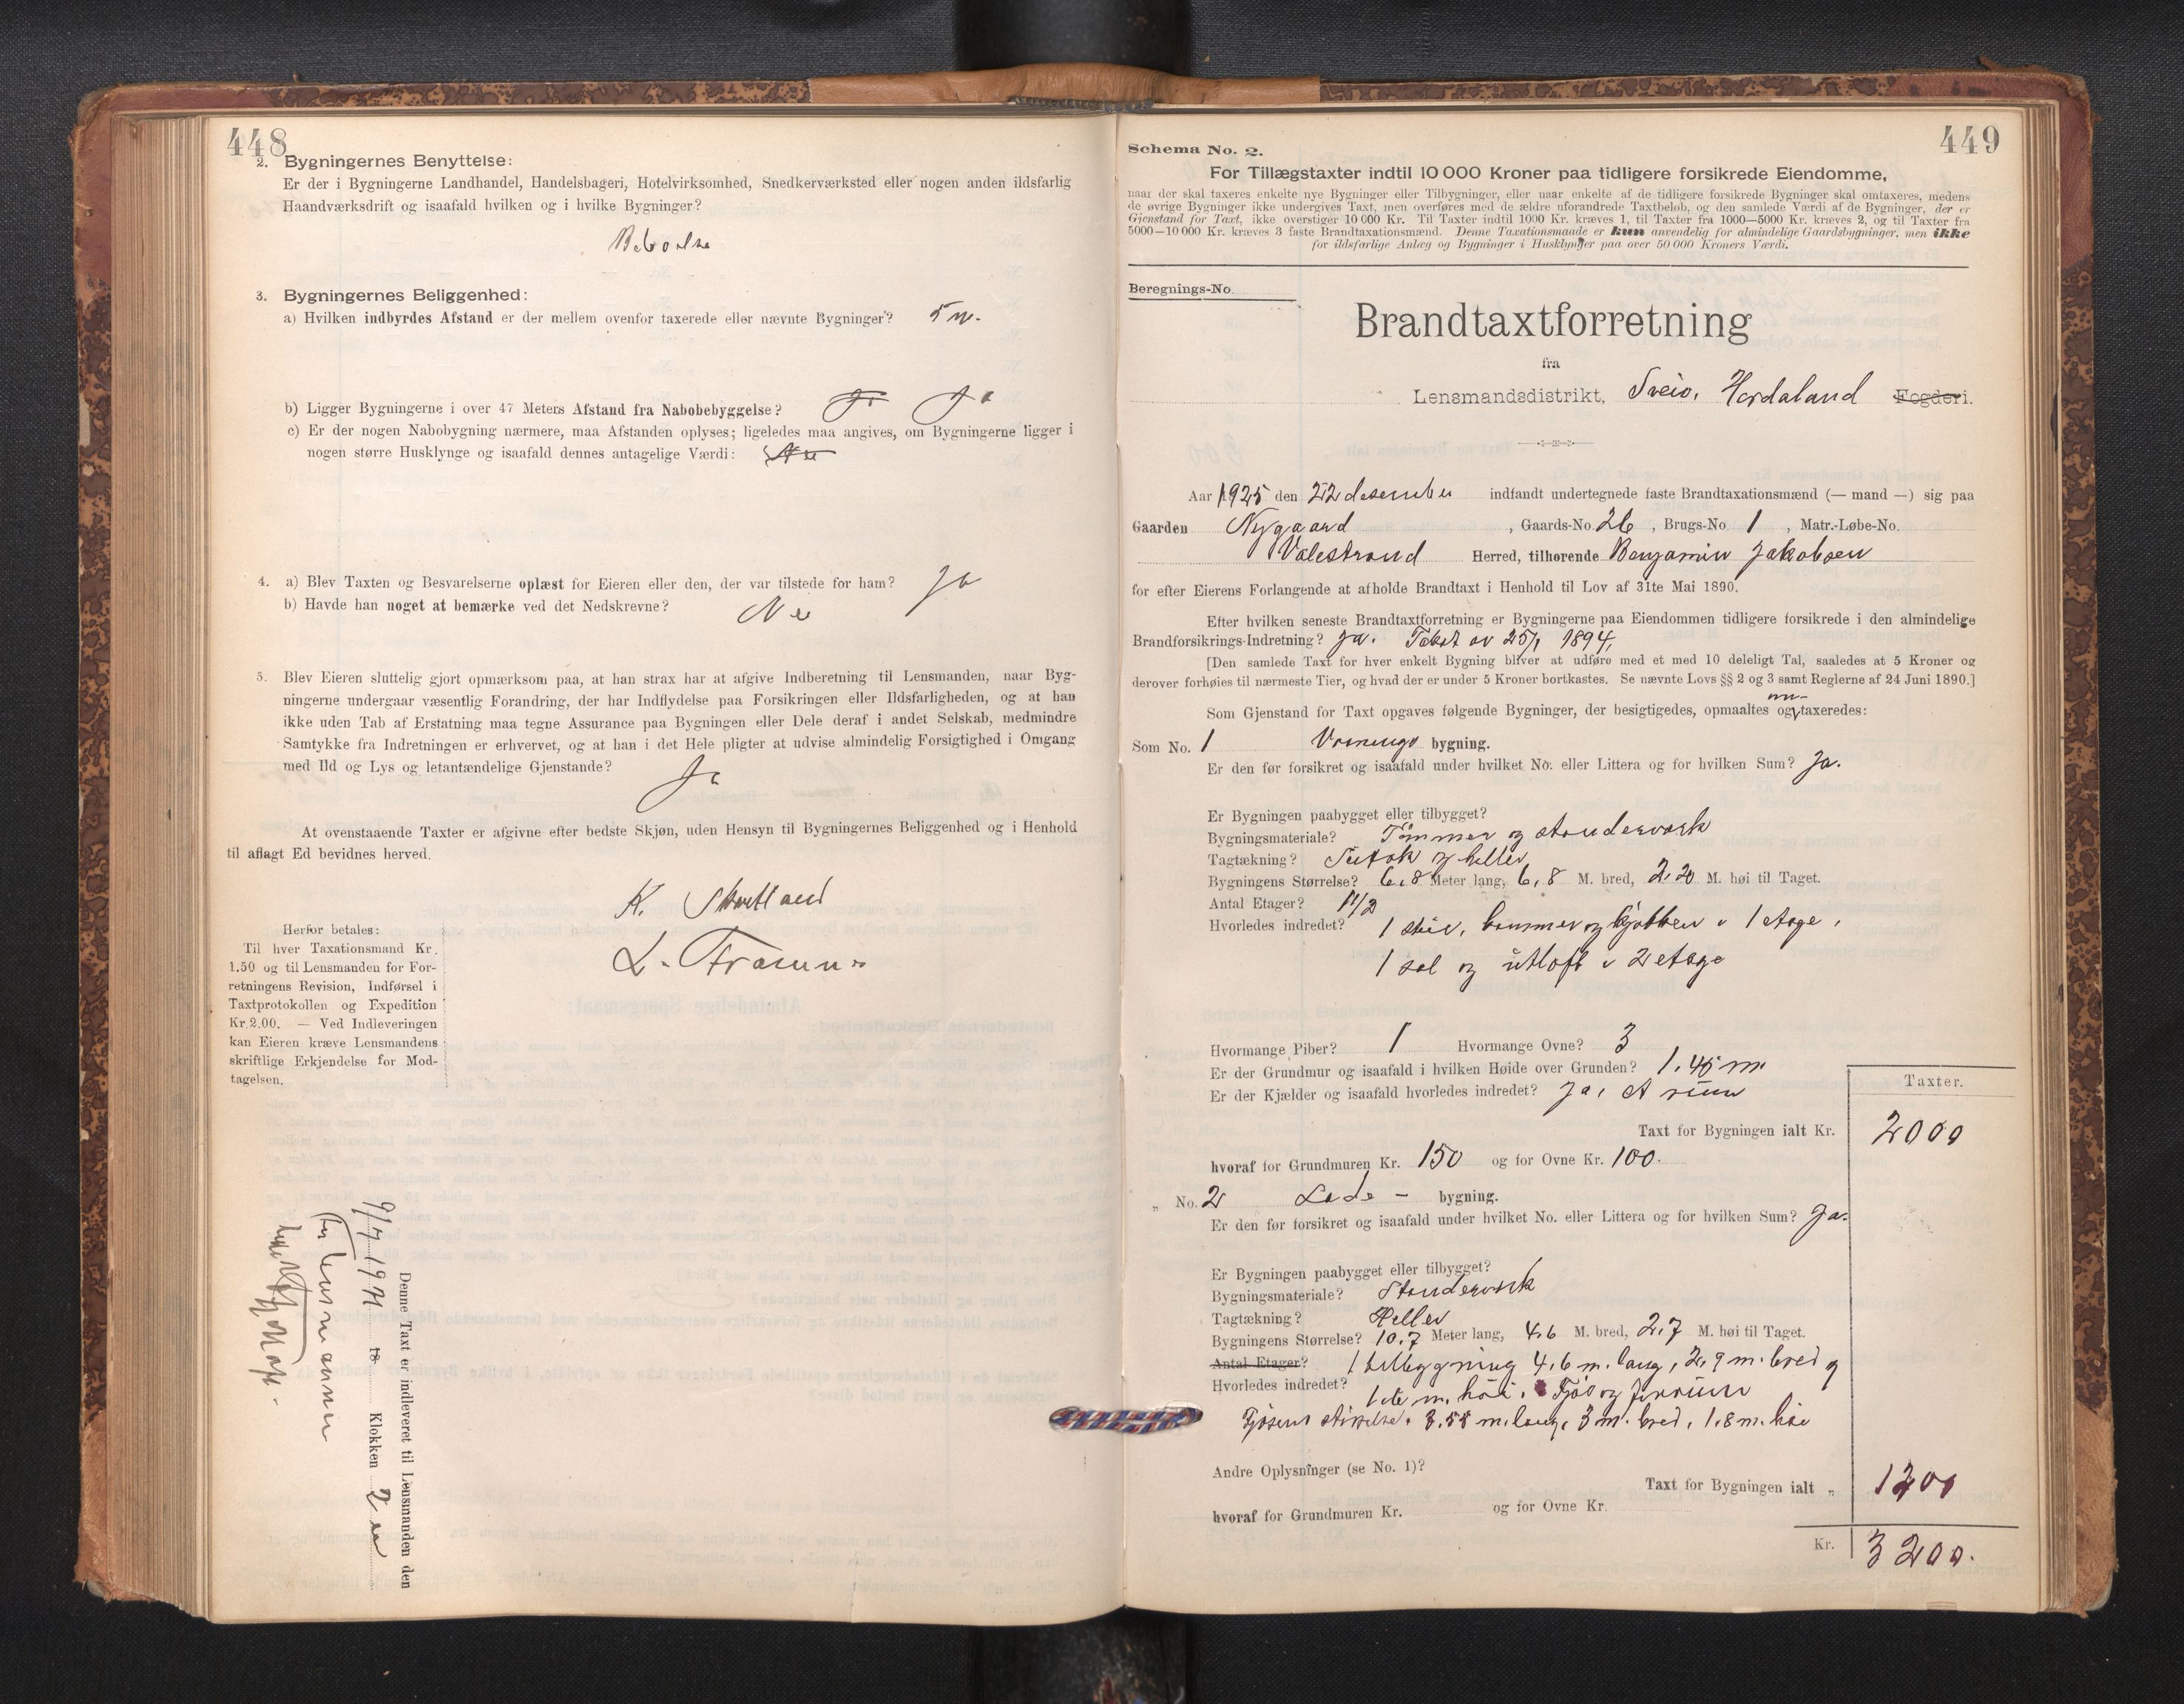 448
2. Bygningernes Benyttelse:
Er der i Bygningerne Landhandel, Handelsbageri, Hotelvirksomhed, Snedkerværksted eller nogen anden ildsfarlig
Haandværksdrift og isaafald hvilken og i hvilke Bygninger?
Beboelse
3. Bygningernes Beliggenhed:
a) Hvilken indbyrdes Afstand er der mellem ovenfor taxerede eller nævnte Bygninger? 5 m.
b) Ligger Bygningerne i over 47 Meters Afstand fra Nabobebyggelse? Ja Ja
c) Er der nogen Nabobygning nærmere, maa Afstanden oplyses; ligeledes maa angives, om Bygningerne ligger i
nogen større Husklynge og isaafald dennes antagelige Værdi:
4. a) Blev Taxten og Besvarelserne oplæst for Eieren eller den, der var tilstede for ham? Ja
b) Havde han noget at bemærke ved det Nedskrevne? Nei
5. Blev Eieren sluttelig gjort opmærksom paa, at han strax har at afgive Indberetning til Lensmanden, naar Byg-
ningerne undergaar væsentlig Forandring, der har Indflydelse paa Forsikringen eller Ildsfarligheden, og at han
ikke uden Tab af Erstatning maa tegne Assurance paa Bygningen eller Dele deraf i andet Selskab, medmindre
Samtykke fra Indretningen er erhvervet, og at han i det Hele pligter at udvise almindelig Forsigtighed i Omgang
med Ild og Lys og letantændelige Gjenstande? Ja
At ovenstaaende Taxter er afgivne efter bedste Skjøn, uden Hensyn til Bygningernes Beliggenhed og i Henhold
til aflagt Ed bevidnes herved.
K.
L.
Herfor betales:
Til hver Taxationsmand Kr.
1.50 og til Lensmanden for For-
retningens Revision, Indførsel i
Taxtprotokollen og Expedition
Kr. 2.00. — Ved Indleveringen
kan Eieren kræve Lensmandens
skriftlige Erkjendelse for Mod-
tagelsen.
Denne Taxt er indleveret til Lensmanden den
18 Klokken
449
Schema No. 2.
For Tillægstaxter indtil 10 000 Kroner paa tidligere forsikrede Eiendomme,
naar der skal taxeres enkelte nye Bygninger eller Tilbygninger, eller naar enkelte af de tidligere forsikrede Bygninger skal omtaxeres, medens
de øvrige Bygninger ikke undergives Taxt, men overføres med de ældre uforandrede Taxtbeløb, og den samlede Værdi af de Bygninger, der er
Gjenstand for Taxt, ikke overstiger 10 000 Kr. Til Taxter indtil 1000 Kr. kræves 1, til Taxter fra 1000—5000 Kr. kræves 2, og til Taxter fra
5000—10 000 Kr. kræves 3 faste Brandtaxationsmænd. Denne Taxationsmaade er kun anvendelig for almindelige Gaardsbygninger, men ikke
for ildsfarlige Anlæg og Bygninger i Husklynger paa over 50 000 Kroners Værdi.
Beregnings-No.
Brandtaxtforretning
fra
Lensmandsdistrikt, Sveio, Hordaland Fogderi.
Aar 1925 den 22 desember indfandt undertegnede faste Brandtaxationsmænd (— mand —) sig paa
Gaarden Nygaard , Gaards-No. 26 , Brugs-No 1 , Matr.-Løbe-No.
Valestrand Herred, tilhørende Benjamin Jakobsen
for efter Eierens Forlangende at afholde Brandtaxt i Henhold til Lov af 31te Mai 1890.
Efter hvilken seneste Brandtaxtforretning er Bygningerne paa Eiendommen tidligere forsikrede i den almindelige
Brandforsikrings-Indretning? Ja. Takst av 25/1 1894.
[Den samlede Taxt for hver enkelt Bygning bliver at udføre med et med 10 deleligt Tal, saaledes at 5 Kroner og
derover forhøies til nærmeste Tier, og hvad der er under 5 Kroner bortkastes. Se nævnte Lovs §§ 2 og 3 samt Reglerne af 24 Juni 1890.]
Som Gjenstand for Taxt opgaves følgende Bygninger, der besigtigedes, opmaaltes og om- taxeredes:
Som No. 1 Vaanings bygning.
Er den før forsikret og isaafald under hvilket No. eller Littera og for hvilken Sum? Ja.
Er Bygningen paabygget eller tilbygget?
Bygningsmateriale? Tømmer og standerverk
Tagtækning? Sutak og heller
Bygningens Størrelse? 6,8 Meter lang, 6,8 M. bred, 2,20 M. høi til Taget.
Antal Etager? 1 1/2
Hvorledes indredet? 1 stue, kammer og kjøkken i 1 etage,
1 sal og utloft i 2 etage
Hvormange Piber? 1 Hvormange Ovne? 3
Er der Grundmur og isaafald i hvilken Høide over Grunden? 1.45 m.
Er der Kjælder og isaafald hvorledes indredet? Ja, et rum
Taxter.
Taxt for Bygningen ialt Kr. 2000
hvoraf for Grundmuren Kr. 150 og for Ovne Kr. 100.
„ No. 2 Lade - bygning.
Er den før forsikret og isaafald under hvilket No. eller Littera og for hvilken Sum? Ja.
Er Bygningen paabygget eller tilbygget?
Bygningsmateriale? Standerverk
Tagtækning? Heller
Bygningens Størrelse? 10,7 Meter lang, 4,6 M. bred, 2,7 M. høi til Taget.
Antal Etager? 1 tilbygning 4,6 m. lang, 2,9 m. bred og
Hvorledes indredet? m. høi. Fjøs og
Fjøsens størrelse: 3.55 m. lang, 3 m. bred, 1.8 m. høi
Andre Oplysninger (se No. 1)?
Taxt for Bygningen ialt „ 1200
hvoraf for Grundmuren Kr. og for Ovne Kr.
Kr. 3200.